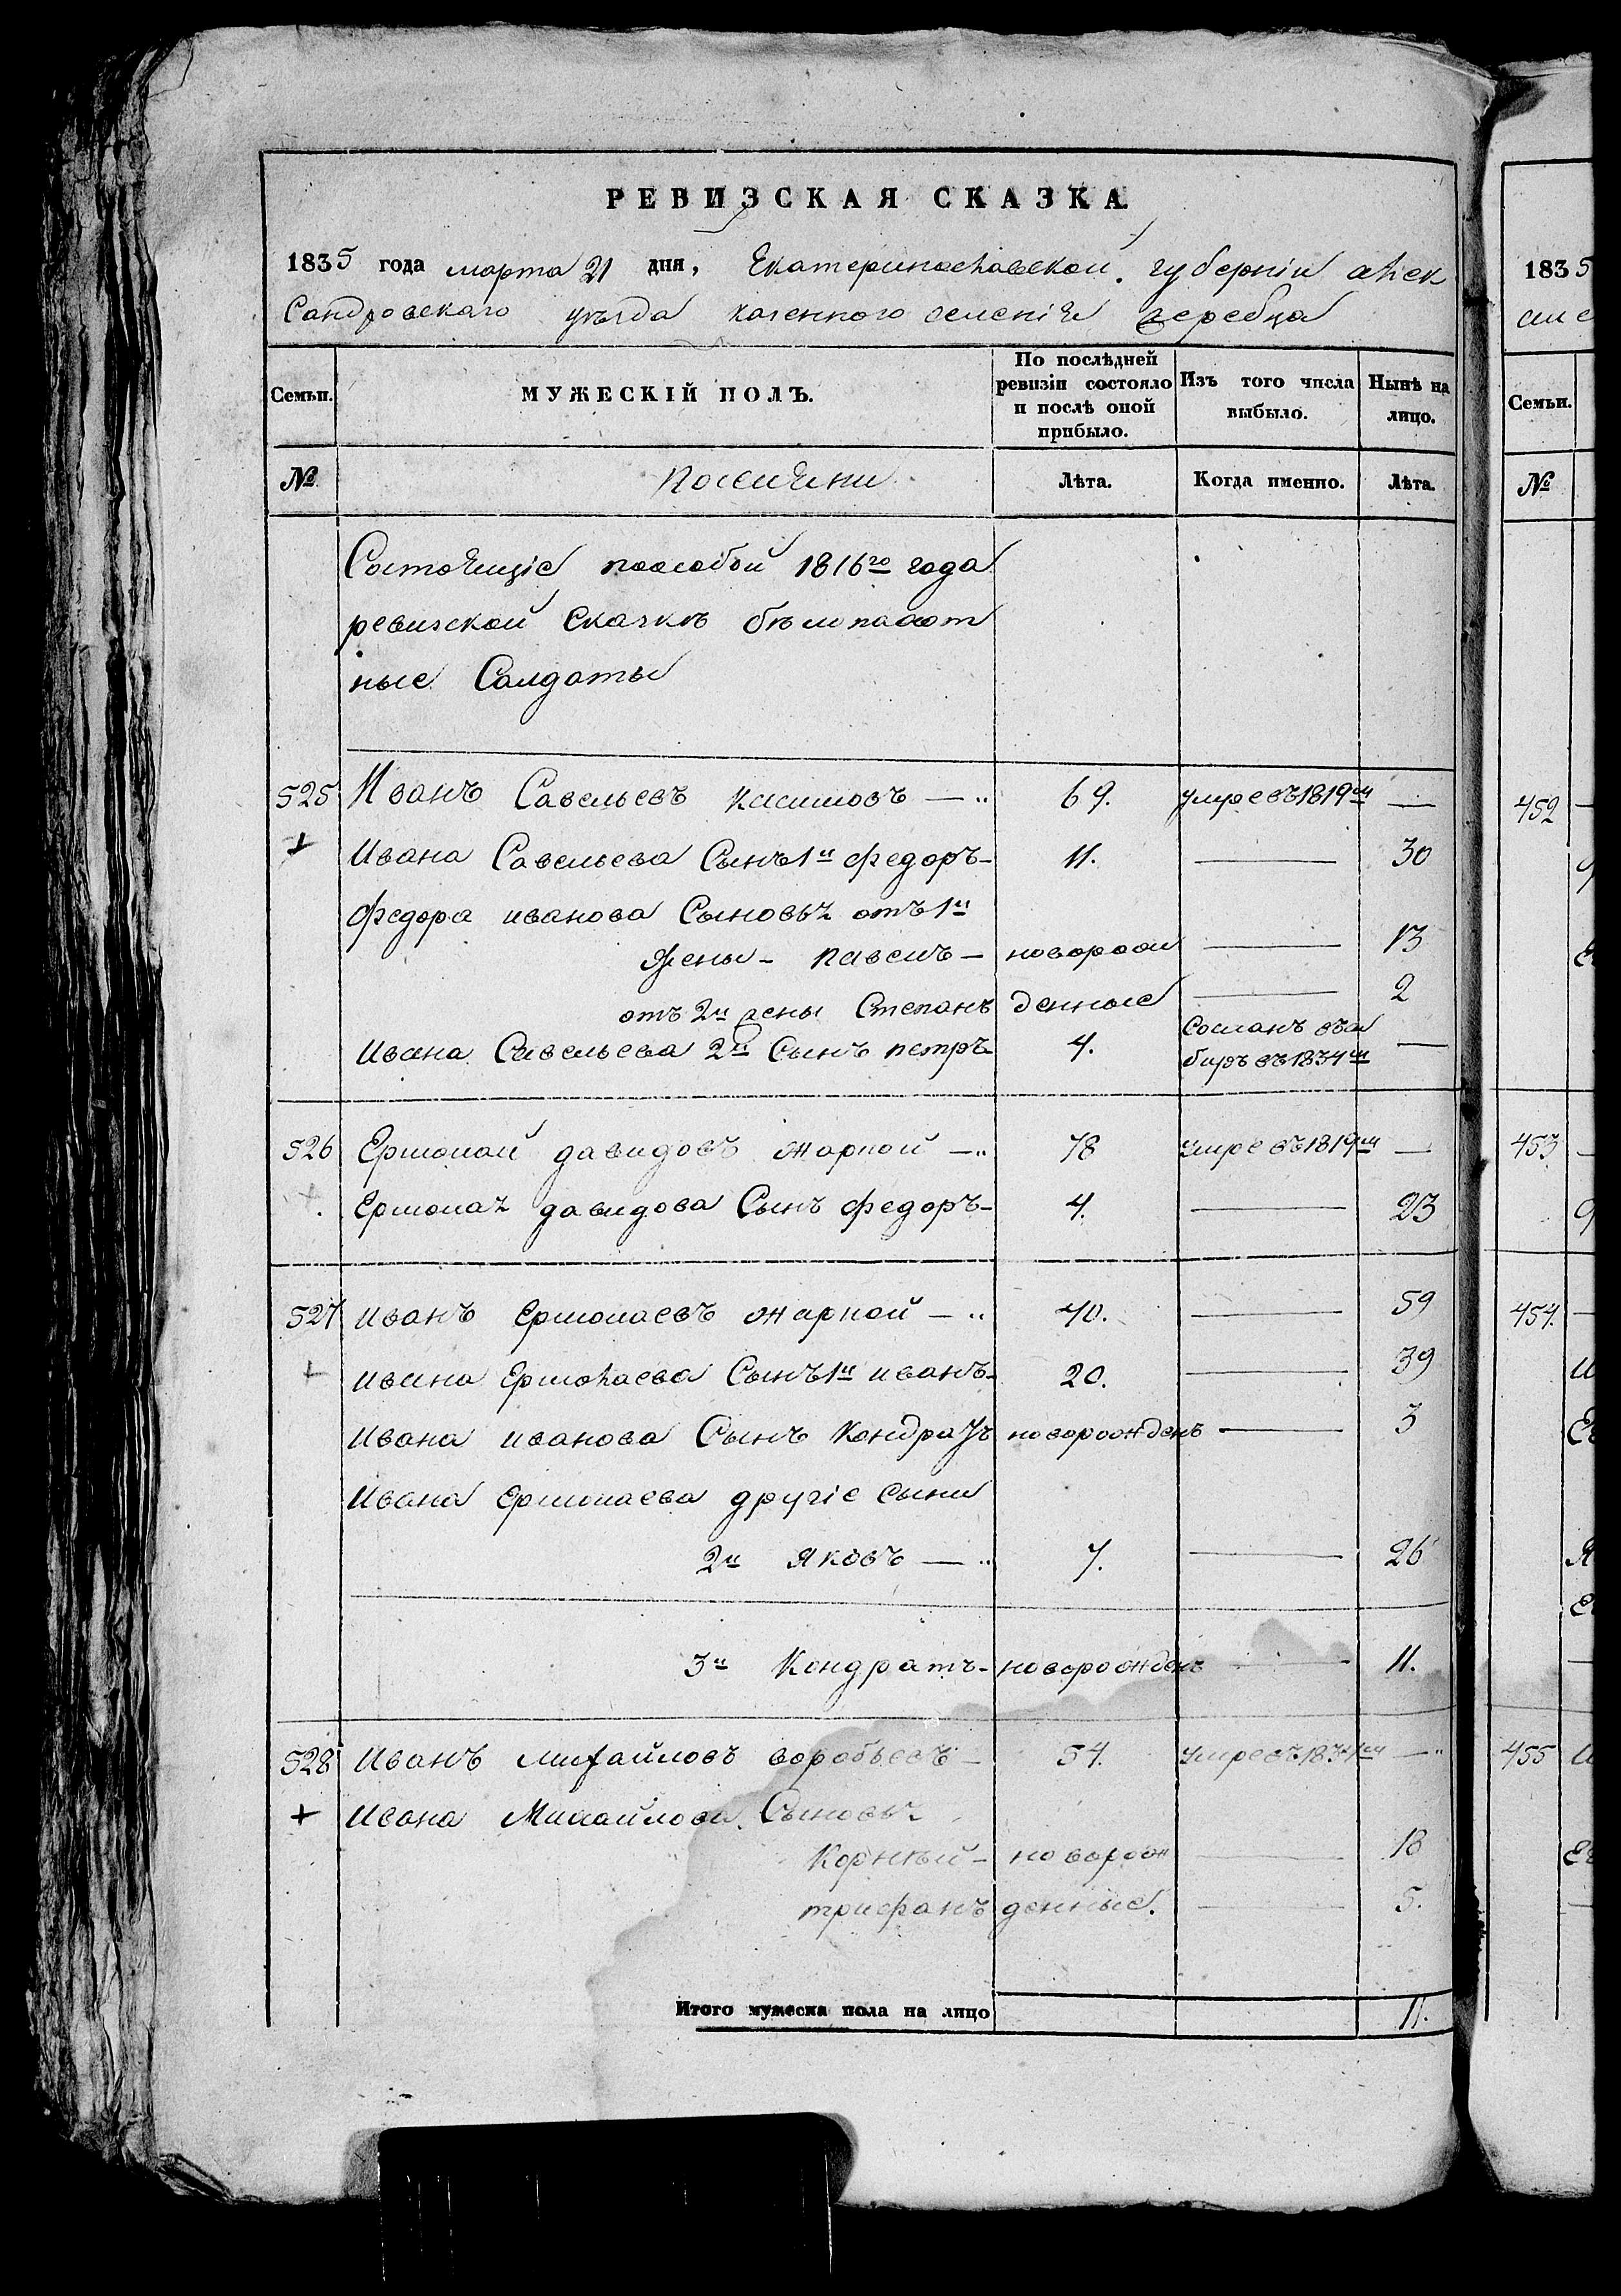 РЕВИЗСКАЯ СКАЗКА.
1835 года марта 21 дня, Екатеринославской губерніи алек
сандровскаго уѣзда казенного селенія жеребца
Семьи. МУЖЕСКІЙ ПОЛЪ. По послѣдней ревизіи состояло и послѣ оной прибыло. Изъ того числа выбыло. Нынѣ на лицо.
№ Поселяни Лѣта. Когда именно. Лѣта.
Состоящіе поособой 1816го года
ревизской Сказкѣ бѣлопаспорт
ные Салдаты
525 Иванъ Савельевъ — 69. умре въ 1819м —
Ивана Савельева Сынъ 1й федоръ 11. — 30
Федора иванова Сыновья отъ 1й
жены - павелъ - новорож — 13
отъ 2й жены Степанъ денные — 2
Ивана Савельева 2й Сынъ петръ 4. Сосланъ въси биръ въ 1834м —
526 Ермолай давидовъ жарной — 78 умре въ 1819м —
Ермолая давидова Сынъ федоръ 4. — 23
527 иванъ Ермолаевъ жарной — 40. — 59
ивана Ермолаева Сынъ 1й иванъ 20. — 39
Ивана иванова Сынъ Кондратъ новорожденъ — 3
Ивана Ермолаева другіе сыни
2й Яковъ — 7. — 26
3й Кондратъ - новорожденъ — 11.
528 Иванъ михайловъ воробьевъ — 54. умре въ 1834м —
+ Ивана Михайлова Сыновья
Корнѣй - новорож — 18
трифанъ денные. — 5.
Итого мужеска пола на лицо 11.
1835
Семьи.
№
452
453
454.
455